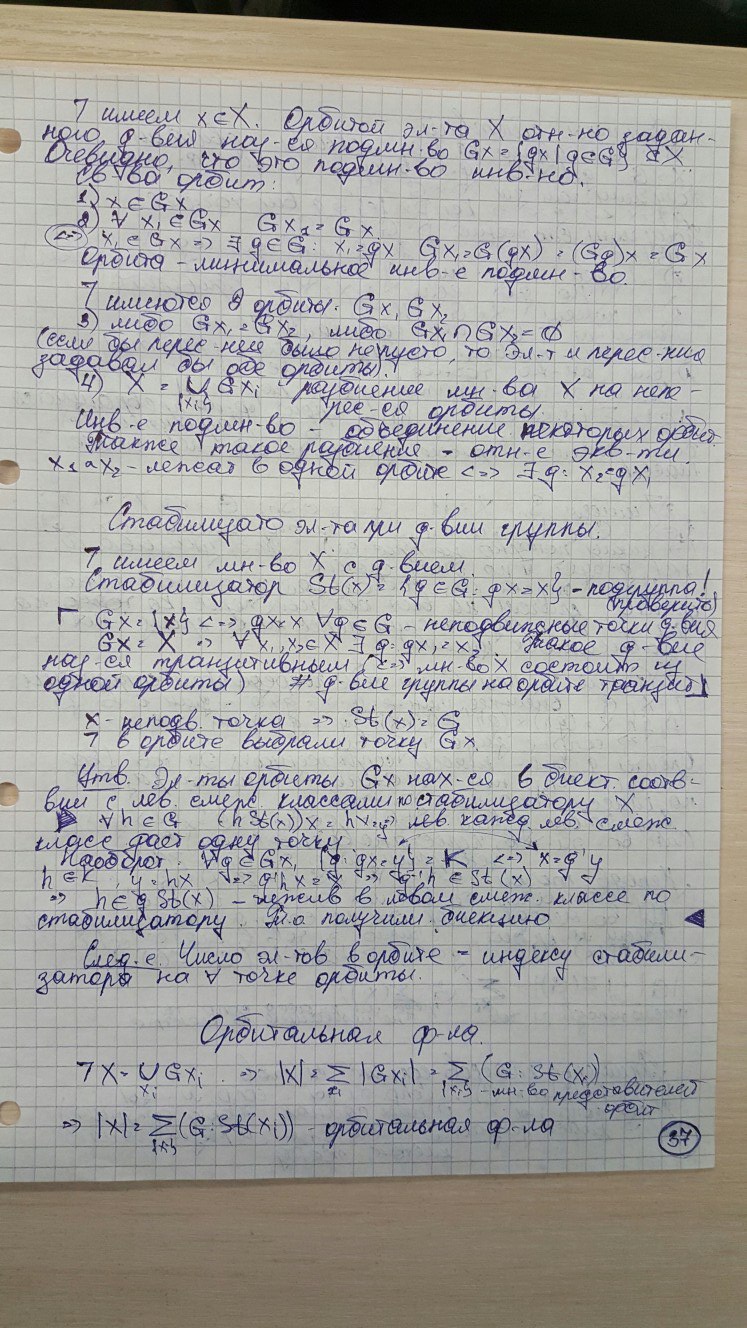 7 имеем x∈X. Орбитой эл-та X отн-но задан-
ного д-вия наз-ся подмн-во Gx = {gx | g∈G} ⊂ X
Очевидно, что это подмн-во инв-но.
Св-ва орбит:
1) x∈Gx
2) ∀ x₁∈Gx Gx₁ = Gx
<=> x₁∈Gx => ∃ g∈G: x₁=gx Gx₁=G(gx) = (Gg)x = Gx
Орбита - минимальное инв-е подмн-во.
7 имеются 2 орбиты: Gx₁ Gx₂
3) либо Gx₁=Gx₂, либо Gx₁∩Gx₂=∅
(если бы перес-ние было непусто, то эл-т и перес-ния
задавал бы обе орбиты)
4) X = ∪ Gxᵢ разбиение мн-ва X на непе-
{xᵢ} рес-ся орбиты
Инв-е подмн-во - объединение некоторых орбит.
Также такое разбиение - отн-е экв-ти.
x₁~x₂ - лежат в одной орбите <=> ∃ g: x₂=gx₁
Стабилизато эл-та при д-вии группы.
7 имеем мн-во X с д-вием.
Стабилизатор St(x) = {g∈G: gx=x} - подгруппа!
(проверить)
Г Gx = {x} <=> gx=x ∀g∈G - неподвижные точки д-вия
Gx = X => ∀ x₁, x₂∈X ∃ g: gx₁=x₂. Такое д-вие
наз-ся транзитивным (<=> мн-во X состоит из
одной орбиты) # д-вие группы на орбите транзит
x - неподв. точка => St(x) = G
7 в орбите выбрали точку Gx.
Утв. Эл-ты орбиты Gx нах-ся в биект. соотв-
вии с лев. смежн. классами по стабилизатору X
▶ ∀h∈G (h St(x))x = hx=y => лев. кажд. лев. смеж.
класс даст одну точку.
Наоборот: ∀y∈Gx, {g: gx=y} = K <=> x=g⁻¹y
h∈K, y=hx => g⁻¹hx=x => g⁻¹h∈St(x)
=> h∈g St(x) - лежит в левом смеж. классе по
стабилизатору. Т.о получили биекцию ◀
След-е. Число эл-тов в орбите = индексу стабили-
затора на ∀ точке орбиты.
Орбитальная ф-ла.
7 X = ∪ Gxᵢ => |X| = Σ |Gxᵢ| = Σ (G: St(xᵢ))
xᵢ xᵢ {xᵢ} - мн-во представителей
орбит
=> |X| = Σ (G: St(xᵢ)) - орбитальная ф-ла
{xᵢ}
37